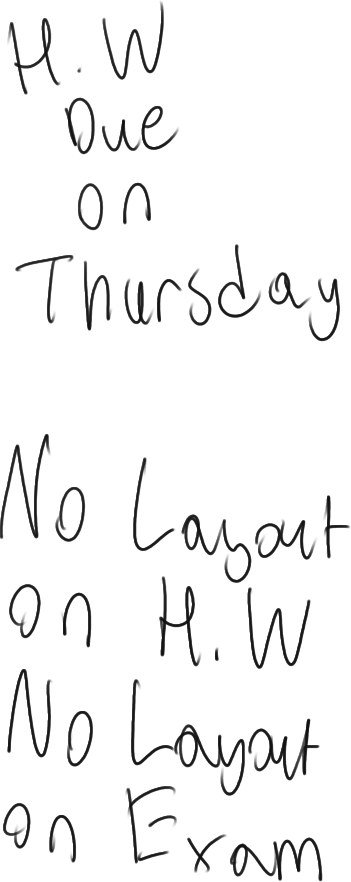 H.W
Due
on
Thursday
No Layout
on H.W
No Layout
on Exam